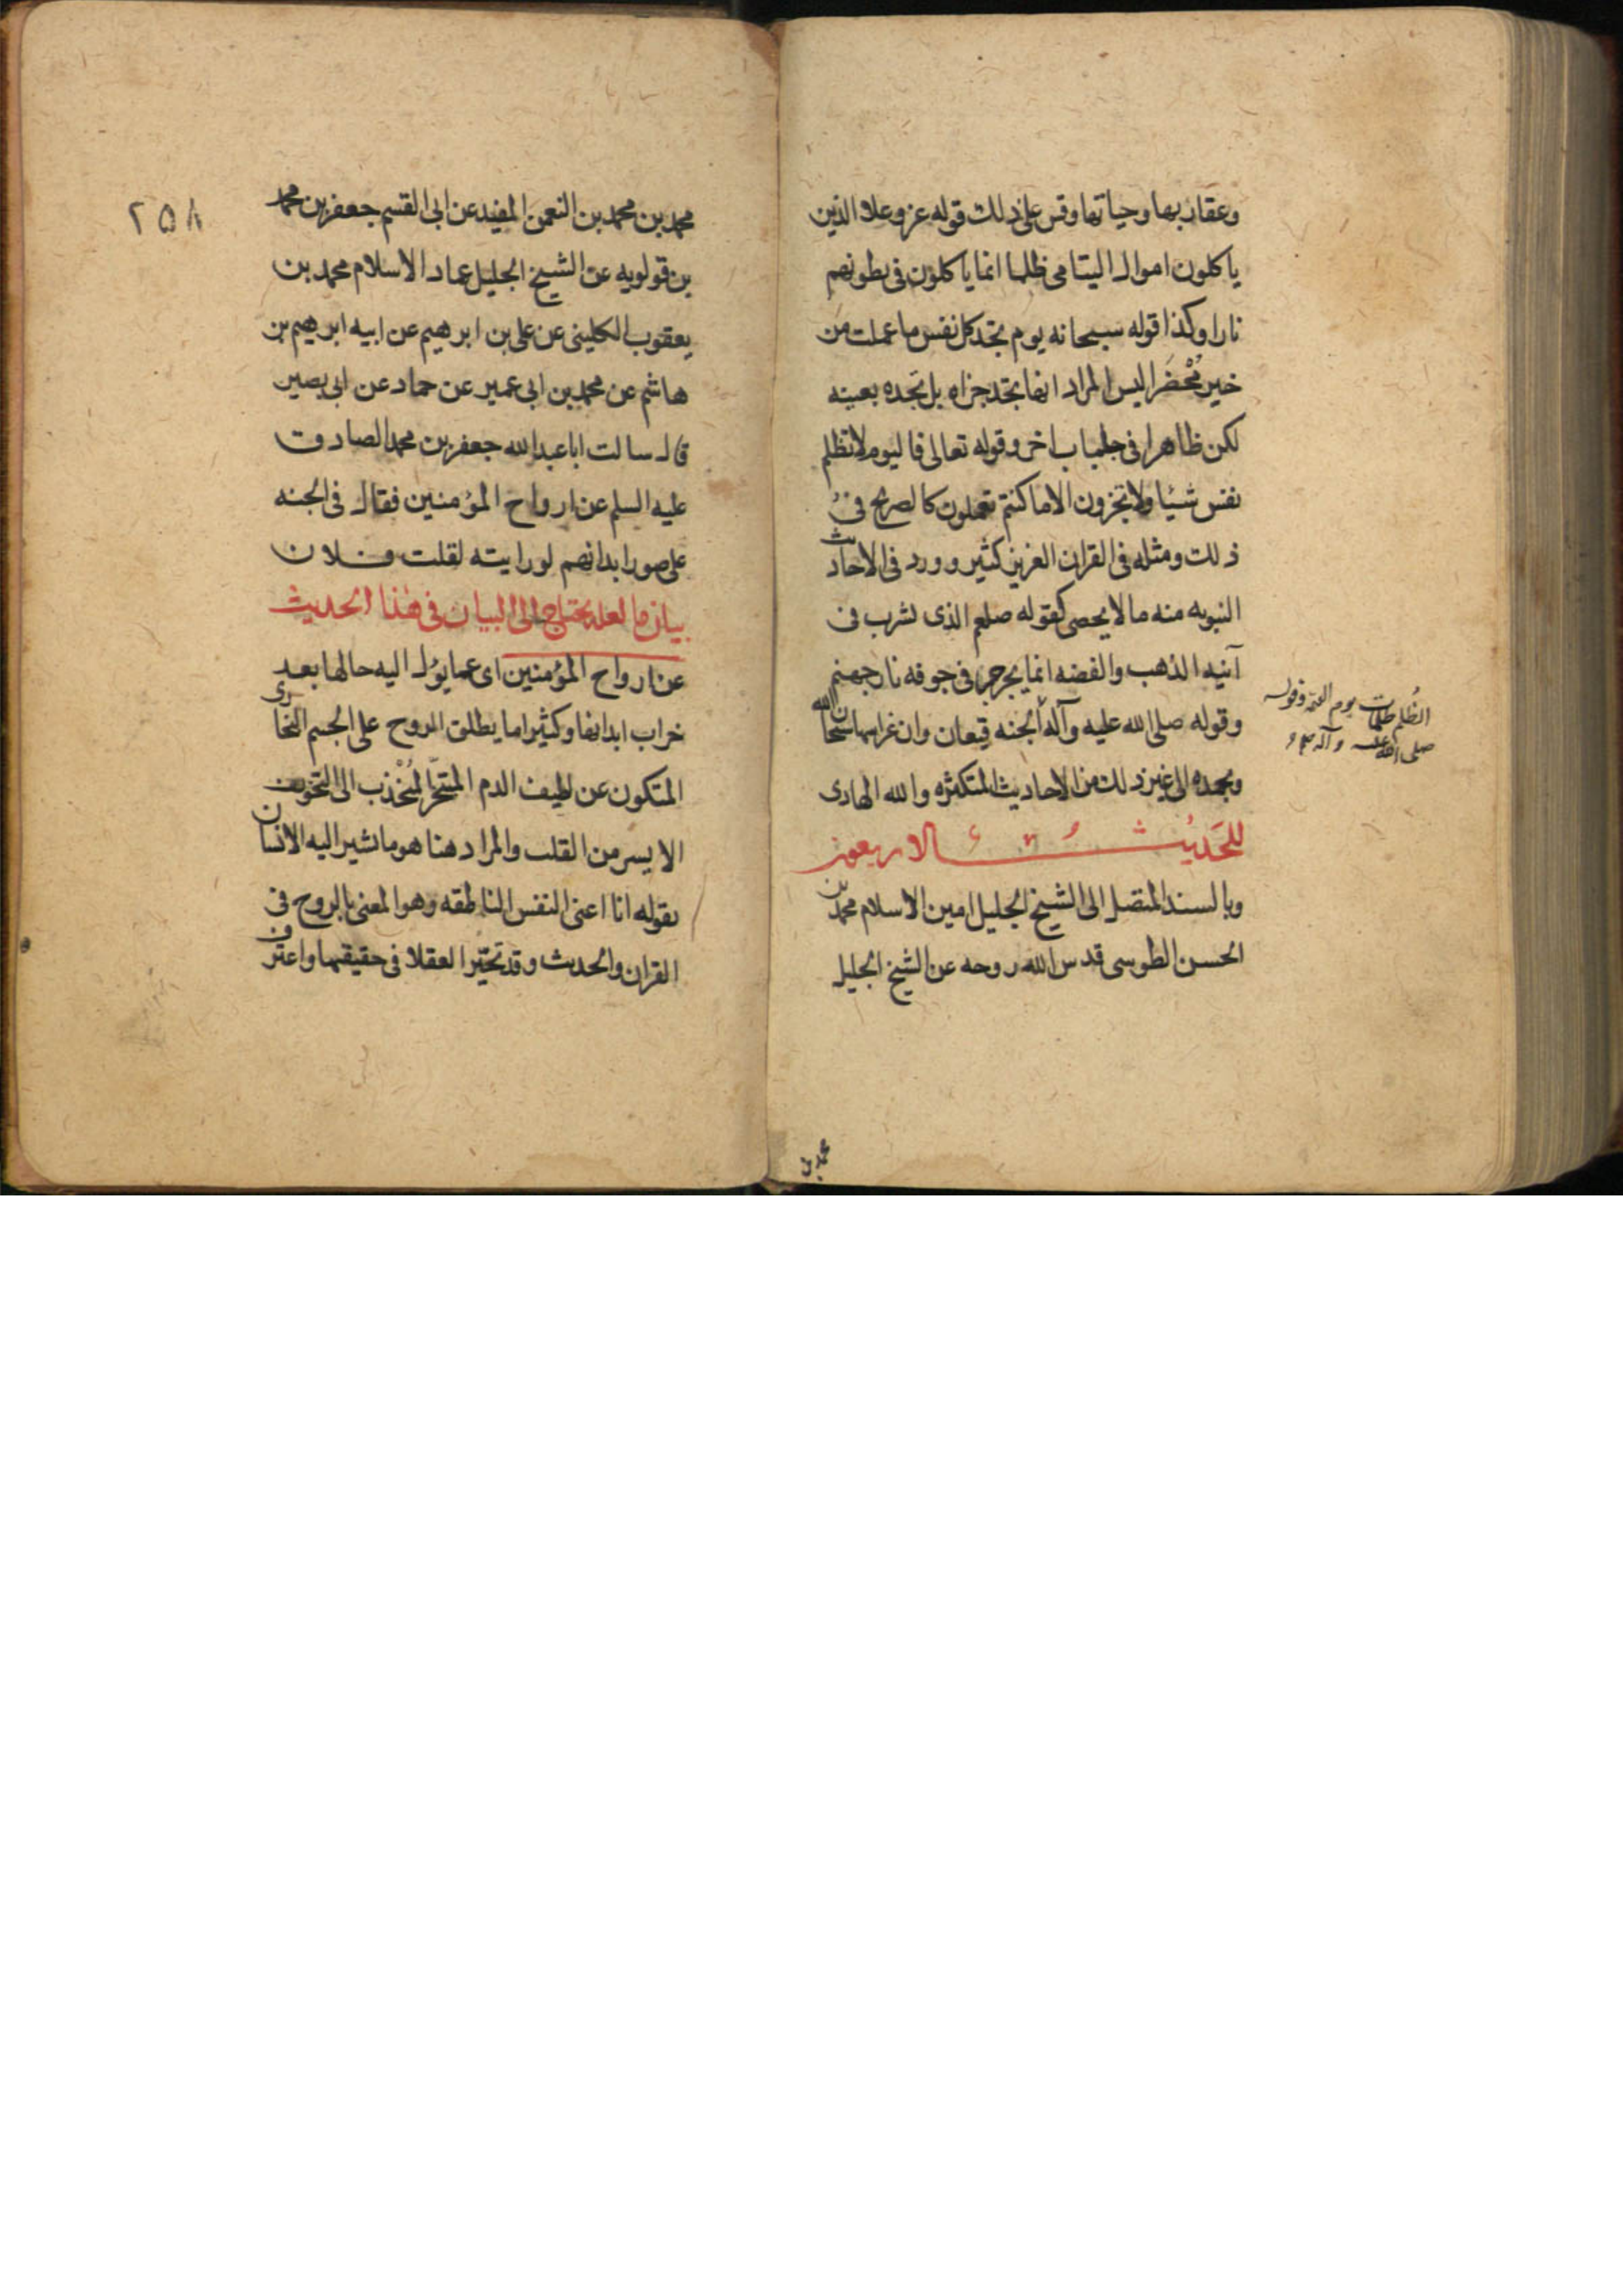 وعقاربها وحياتها وقس على ذلك قوله عز وعلا الذين
ياكلون اموال اليتامى ظلما انما ياكلون فى بطونهم
نارا وكذا قوله سبحانه يوم تجد كل نفس ما عملت من
خير مُحْضَرا ليس المراد انها تجد جزاه بل تجده بعينه
لكن ظاهرا فى جلباب اخر وقوله تعالى فاليوم لا تظلم
نفس شيئا ولا تجزون الا ما كنتم تعملون كالصريح فى
ذلك ومثله فى القران العزيز كثير وورد فى الاحاديث
النبويه منه ما لا يحصى كقوله صلعم الذى يشرب فى
آنيه الذهب والفضه انما يجرجر فى جوفه نار جهنم
وقوله صلى الله عليه وآله الجنه قيعان وان غراسها سبحان الله
وبحمده الى غير ذلك من الاحاديث المتكثره والله الهادى
الحَديث الاربعون
وبالسند المتصل الى الشيخ الجليل امين الاسلام محمد بن
الحسن الطوسى قدس الله روحه عن الشيخ الجليل
الظُلم ظلمات يوم القيمة وقوله
صلى الله عليه وآله
محمد بن
٢٥٨
محمد بن محمد بن النعمن المفيد عن ابى القسم جعفر بن محمد
بن قولويه عن الشيخ الجليل عماد الاسلام محمد بن
يعقوب الكلينى عن على بن ابرهيم عن ابيه ابرهيم بن
هاشم عن محمد بن ابى عمير عن حماد عن ابى بصير
قال سالت ابا عبد الله جعفر بن محمد الصادق
عليه السلم عن ارواح المؤمنين فقال فى الجنه
على صور ابدانهم لو رايته لقلت فلان
بيان ما لعله يحتاج الى البيان فى هذا الحديث
عن ارواح المؤمنين اى عما يؤل اليه حالها بعد
خراب ابدانها وكثيرا ما يطلق الروح على الجسم البخارى
المتكون عن لطيف الدم المتبخّر المُنْجذب الى التجويف
الايسر من القلب والمراد هنا هو ما نشير اليه الانسان
بقوله انا اعنى النفس الناطقه وهو المعنى بالروح فى
القران والحديث وقد تحيّر العقلا فى حقيقتها واعترف